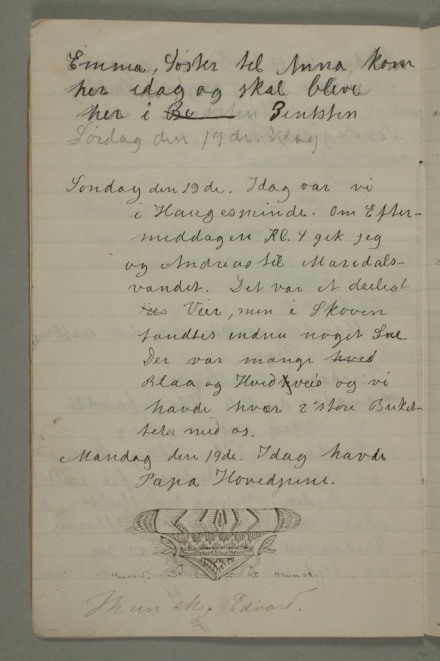 Emma, Søster til Anna, kom
her idag og skal blive
her i Be 3 Entsten
Lørdag den 19de. Idag
Søndag den 19de. Idag var vi
i Haugesminde. Om Efter-
middagen Kl. 4 gik jeg
og Andreas til Maridals-
vandet. Det var et deiligt
Veir, men i Skoven
fandtes endnu noget Sne.
Der var mange hved
Blaa og Hvidveis og vi
havde hver 2 store Buket-
ter med os.
Mandag den 19de. Idag havde
Papa Hovedpine.
Munch. Edvard.